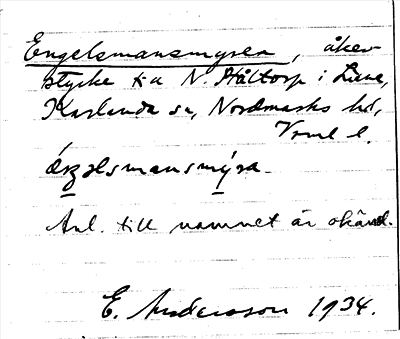 Engelsmansmyren, åker-
stycke t. a N. Håltorp i Liane,
Karlanda sn, Nordmarks hd,
Vrml l.
ǽŋəlsmansmýra.
Anl. till namnet är okänd.
E. Andersson 1934.